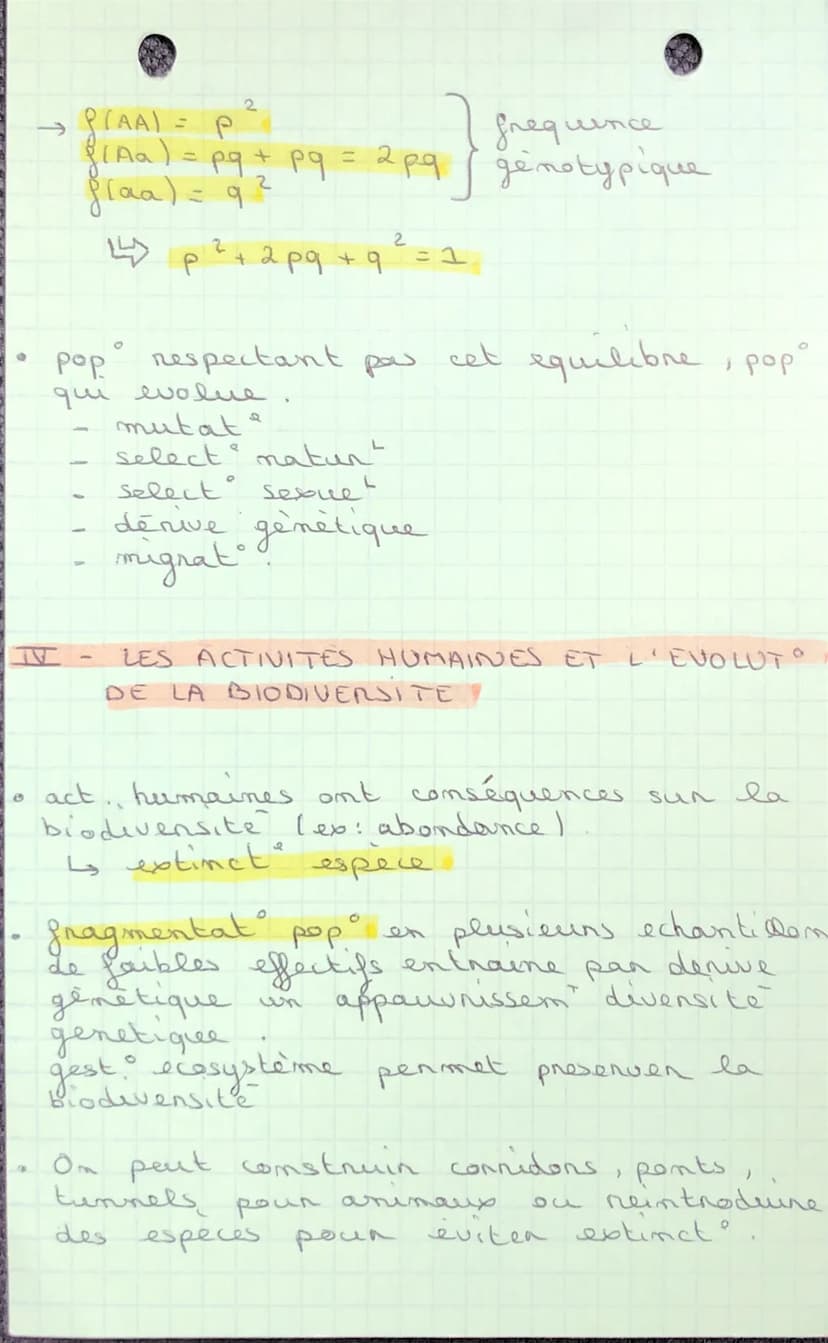 → f(AA) = p² } frequence
f(Aa) = pq + pq = 2pq génotypique
f(aa) = q²
↳ p² + 2pq + q² = 1
• pop° respectant pas cet equilibre, pop°
qui evolue.
- mutat°
- select° naturL
- select° sexueL
- dérive génétique
- migrat°.
IV - LES ACTIVITÉS HUMAINES ET L'EVOLUT°
DE LA BIODIVERSITE
• act.. humaines ont conséquences sur la
biodiversité (ex: abondance)
↳ extinct° espèce
• fragmentat° pop° en plusieurs echantillon
de faibles effectifs entraine par derive
génétique un appauvrissemT diversité
genetique.
gest° ecosystème permet preserver la
biodiversité
• On peut construir corridors, ponts,
tunnels, pour animaux ou reintroduire
des espèces pour éviter extinct°.